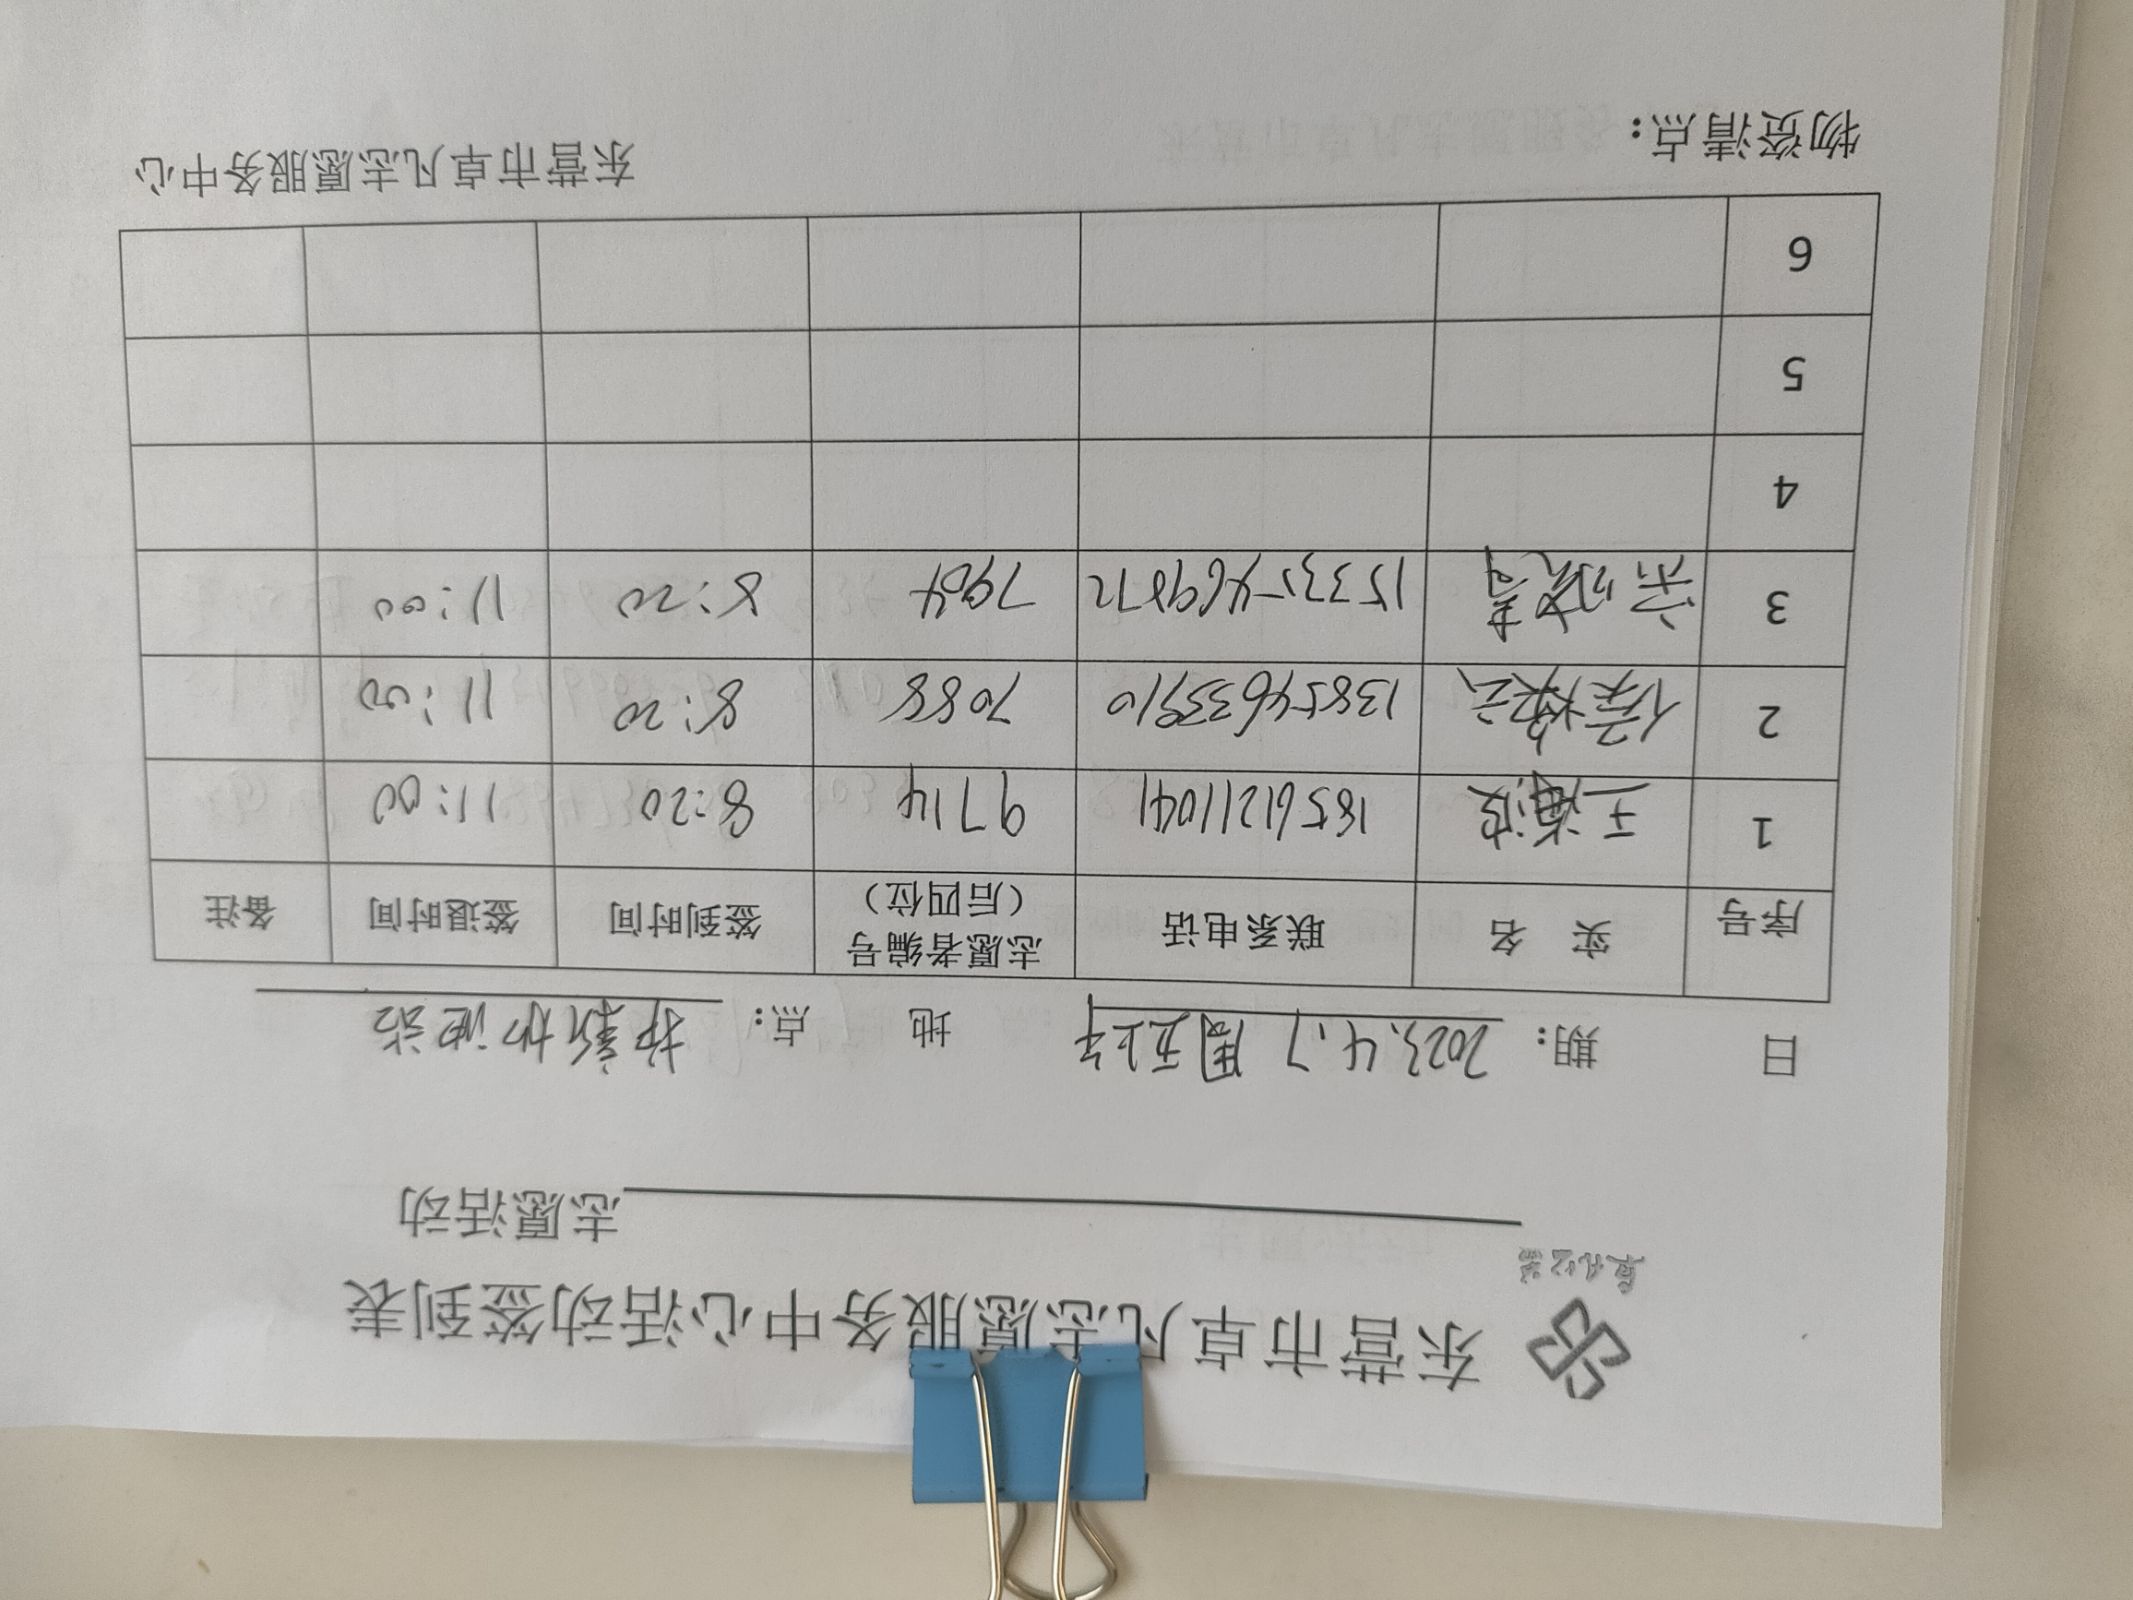 卓凡公益
东营市卓凡志愿服务中心活动签到表
志愿活动
日 期: 2023.4.7 周五上午 地 点:
序号 实 名 联系电话 志愿者编号（后四位） 签到时间 签退时间 备注
1 王海波 18561211041 9714 8:20 11:00
2 7088 8:20 11:00
3 15335469872 8:20 11:00
4
5
6
物资清点: 东营市卓凡志愿服务中心